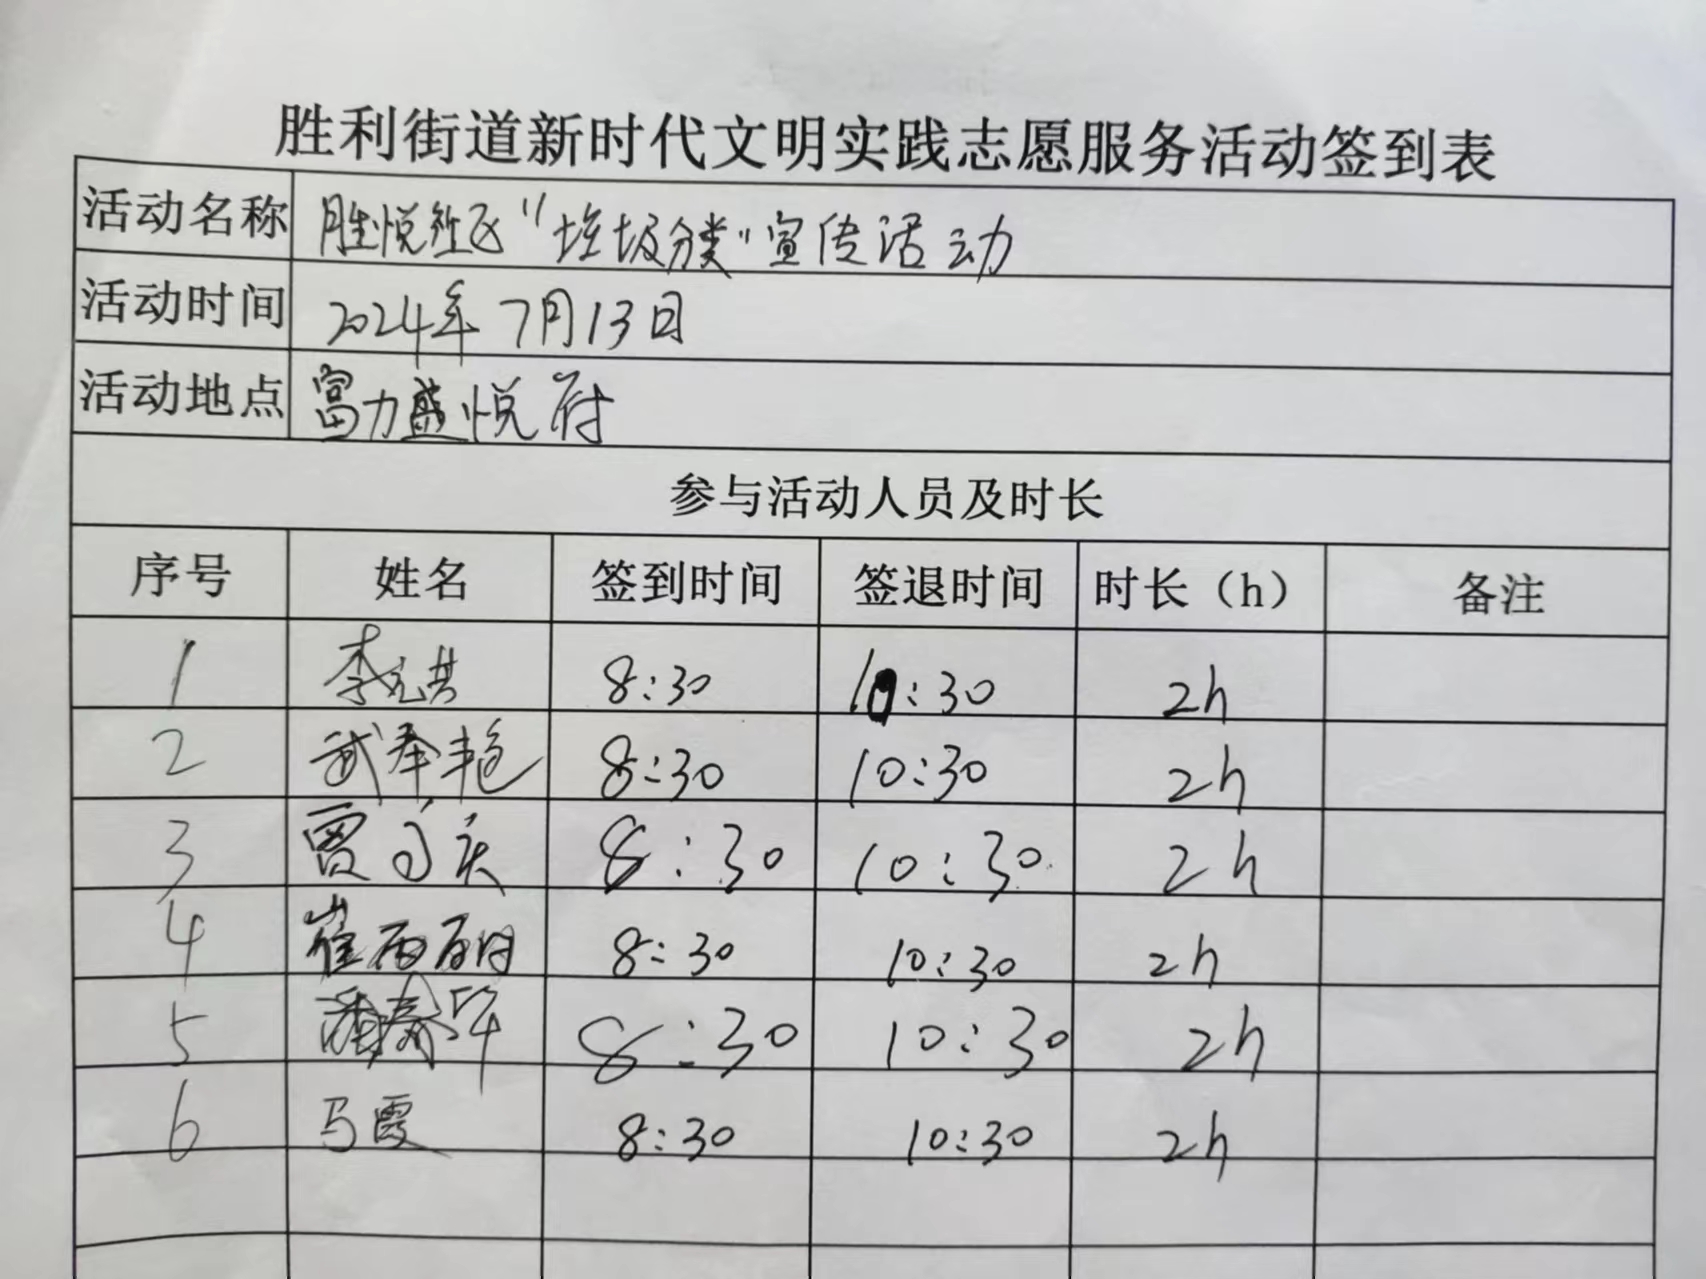 胜利街道新时代文明实践志愿服务活动签到表
活动名称 胜悦社区“垃圾分类”宣传活动
活动时间 2024年7月13日
活动地点 富力盛悦府
参与活动人员及时长
序号 姓名 签到时间 签退时间 时长（h） 备注
1 李 8:30 10:30 2h
2 武春艳 8:30 10:30 2h
3 8:30 10:30 2h
4 崔丽丽 8:30 10:30 2h
5 潘春华 8:30 10:30 2h
6 马霞 8:30 10:30 2h